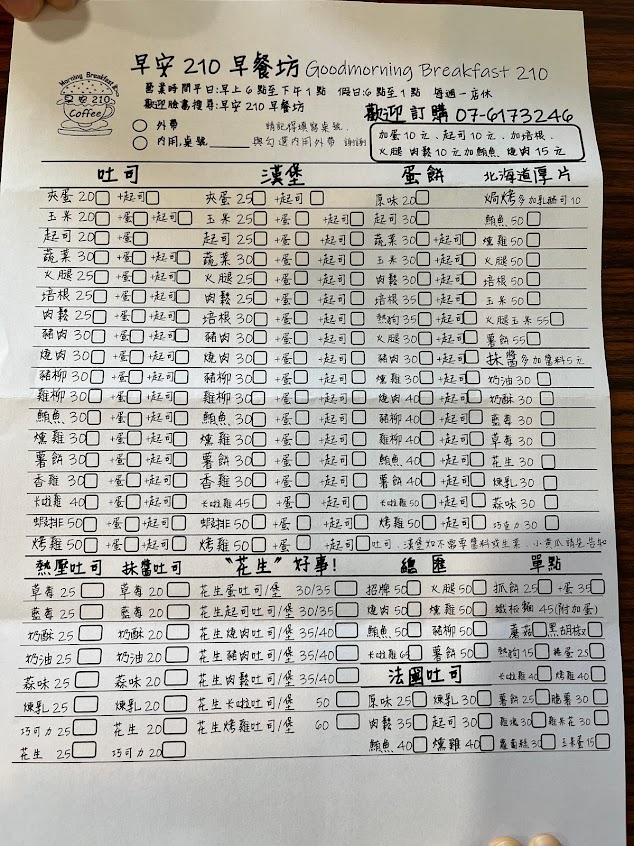 Morning Breakfast
早安 210
Coffee
早安 210 早餐坊 Goodmorning Breakfast 210
營業時間平日:早上6點至下午1點 假日:6點至1點 每週一店休
歡迎臉書搜尋:早安 210 早餐坊
歡迎訂購 07-6173246
外帶 請記得填寫桌號.
內用,桌號 與勾選內用外帶 謝謝
加蛋10元、起司10元、加培根、
火腿 肉鬆10元加鮪魚 燒肉15元
吐司 漢堡 蛋餅 北海道厚片
夾蛋 20 +起司 夾蛋 25 +起司 原味 20 焗烤多加乳酪司10
玉米 20 +蛋 +起司 玉米 25 +蛋 +起司 起司 30 鮪魚 50
起司 20 +蛋 起司 25 +蛋 +起司 蔬菜 30 +起司 燻雞 50
蔬菜 30 +蛋 +起司 蔬菜 30 +蛋 +起司 玉米 30 +起司 火腿 50
火腿 25 +蛋 +起司 火腿 30 +蛋 +起司 肉鬆 30 +起司 培根 50
培根 25 +蛋 +起司 肉鬆 25 +蛋 +起司 培根 35 +起司 玉米 50
肉鬆 25 +蛋 +起司 培根 30 +蛋 +起司 熱狗 35 +起司 火腿玉米 55
豬肉 30 +蛋 +起司 豬肉 30 +蛋 +起司 火腿 30 +起司 薯餅 55
燒肉 30 +蛋 +起司 燒肉 30 +蛋 +起司 豬肉 30 +起司 抹醬多加醬料5元
豬柳 30 +蛋 +起司 豬柳 30 +蛋 +起司 燻雞 30 +起司 奶油 30
雞柳 30 +蛋 +起司 雞柳 30 +蛋 +起司 燒肉 40 +起司 奶酥 30
鮪魚 30 +蛋 +起司 鮪魚 30 +蛋 +起司 豬柳 40 +起司 藍莓 30
燻雞 30 +蛋 +起司 燻雞 30 +蛋 +起司 雞柳 40 +起司 草莓 30
薯餅 30 +蛋 +起司 薯餅 30 +蛋 +起司 鮪魚 40 +起司 花生 30
香雞 30 +蛋 +起司 香雞 30 +蛋 +起司 薯餅 40 +起司 煉乳 30
卡啦雞 40 +蛋 +起司 卡啦雞 45 +蛋 +起司 卡啦雞 50 +起司 蒜味 30
蝦排 50 +蛋 +起司 蝦排 50 +蛋 +起司 烤雞 50 +起司 巧克力 30
烤雞 50 +蛋 +起司 烤雞 50 +蛋 +起司 吐司、漢堡如不需要醬料或生菜、小黃瓜請先告知
熱壓吐司 抹醬吐司 "花生"好事! 總匯 單點
草莓 25 草莓 20 花生蛋吐司/堡 30/35 招牌 50 火腿 50 抓餅 25 +蛋 35
藍莓 25 藍莓 20 花生起司吐司/堡 30/35 燒肉 50 燻雞 50 鐵板麵 45(附加蛋)
奶酥 25 奶酥 20 花生燒肉吐司/堡 35/40 鮪魚 50 豬柳 50 蘑菇 黑胡椒
奶油 25 奶油 20 花生豬肉吐司/堡 35/40 卡啦雞 65 薯餅 50 熱狗 15 捲蛋 25
蒜味 25 蒜味 20 花生肉鬆吐司/堡 35/40 法國吐司 卡啦雞 40 烤雞 40
煉乳 25 煉乳 20 花生卡啦吐司/堡 50 原味 25 煉乳 30 薯餅 25 脆薯 30
巧克力 25 花生 20 花生烤雞吐司/堡 60 肉鬆 35 起司 30 雞塊 30 雞米花 30
花生 25 巧克力 20 鮪魚 40 燻雞 40 蘿蔔糕 30 玉米蛋 15